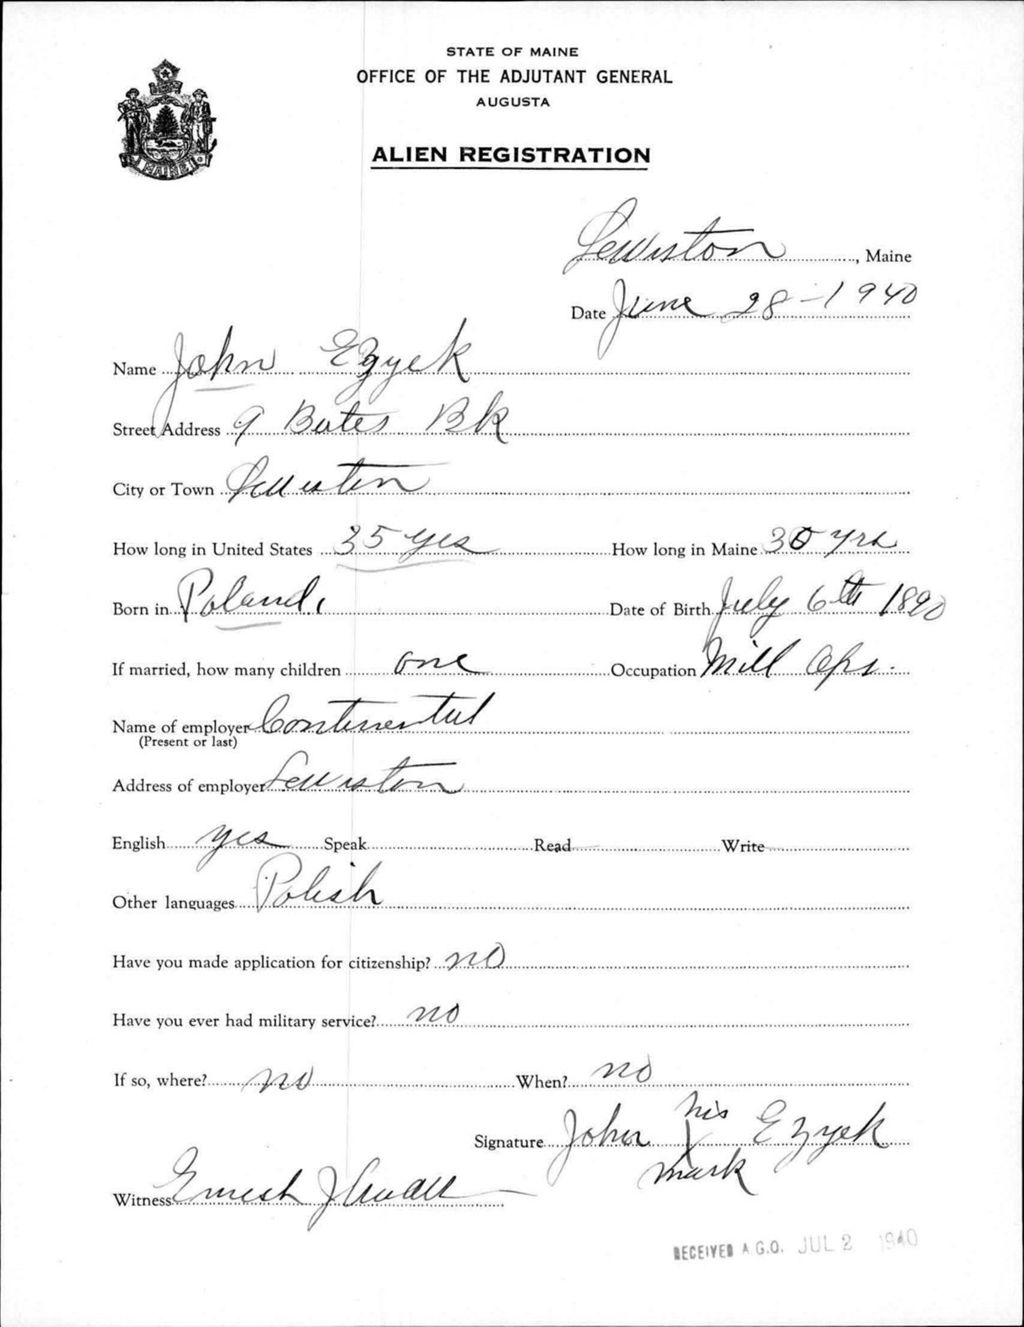 STATE OF MAINE
OFFICE OF THE ADJUTANT GENERAL
AUGUSTA
ALIEN REGISTRATION
MAINE
Lewiston, Maine
Date June 28-1940
Name John Ezyek
Street Address 9 Bates Bk
City or Town Lewiston
How long in United States 35 yes How long in Maine 30 yrs
Born in Poland, Date of Birth July 6th 1890
If married, how many children one Occupation Mill Opr.
Name of employer Continental
(Present or last)
Address of employer Lewiston
English yes Speak Read Write
Other languages Polish
Have you made application for citizenship? no
Have you ever had military service? no
If so, where? no When? no
Signature John his X mark Ezyek
Witness Ernest J
RECEIVED A.G.O. JUL 2 1940